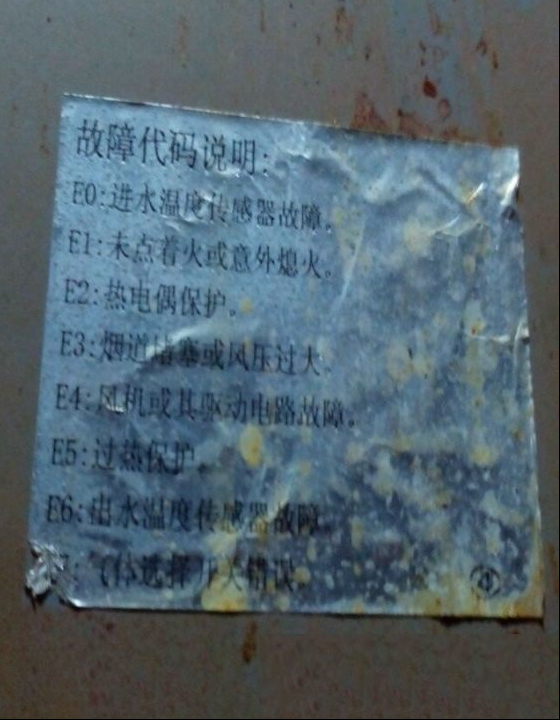 故障代码说明:
E0:进水温度传感器故障。
E1:未点着火或意外熄火。
E2:热电偶保护。
E3:烟道堵塞或风压过大
E4:风机或其驱动电路故障。
E5:过热保护。
E6:出水温度传感器故障
体选择开关错误。
④